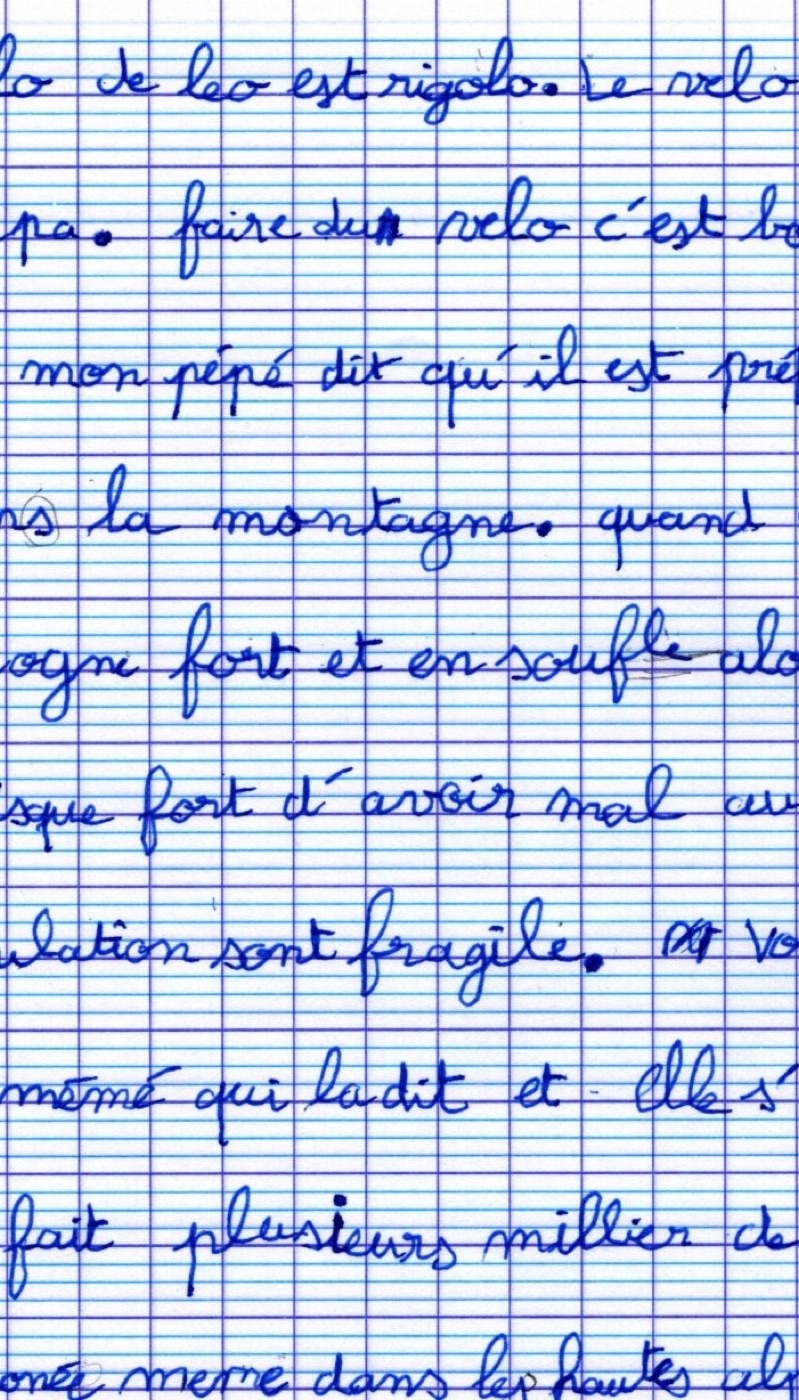 lo de leo est rigolo. Le velo
pa. faire du velo c'est bo
mon pépé dit qu'il est pré
ns la montagne. quand
ogne fort et en soufle alo
sque fort d'avoir mal au
ulation sont fragile. vo
mémé qui la dit et elle s'
fait plusieurs millier de
onée meme dans les hautes alp